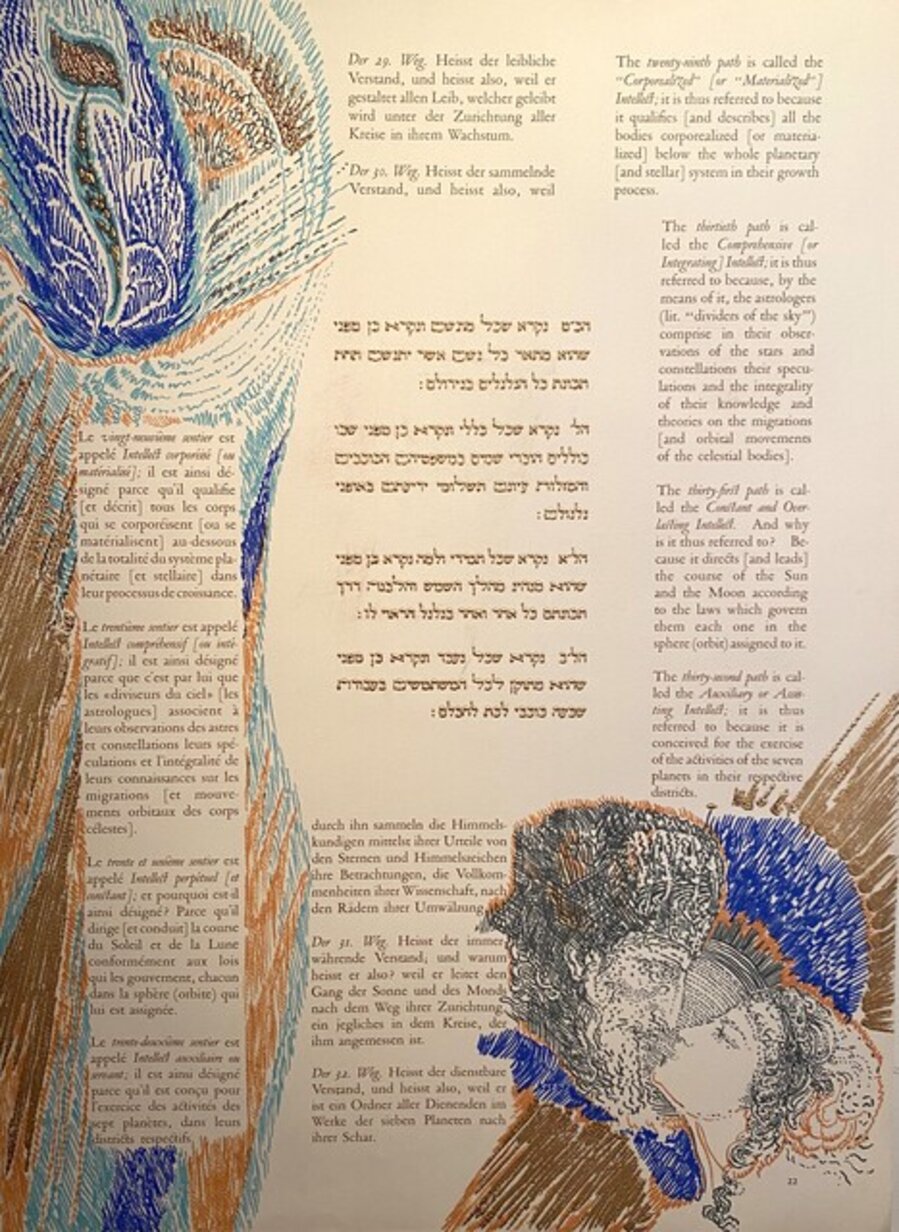 Der 29. Weg. Heisst der leibliche
Verstand, und heisst also, weil er
gestaltet allen Leib, welcher geleibt
wird unter der Zurichtung aller
Kreise in ihrem Wachstum.
Der 30. Weg. Heisst der sammelnde
Verstand, und heisst also, weil
The twenty-ninth path is called the
"Corporealized" [or "Materialized"]
Intellect; it is thus referred to because
it qualifies [and describes] all the
bodies corporealized [or materia-
lized] below the whole planetary
[and stellar] system in their growth
process.
The thirtieth path is cal-
led the Comprehensive [or
Integrating] Intellect; it is thus
referred to because, by the
means of it, the astrologers
(lit. "dividers of the sky")
comprise in their obser-
vations of the stars and
constellations their specu-
lations and the integrality
of their knowledge and
theories on the migrations
[and orbital movements
of the celestial bodies].
The thirty-first path is cal-
led the Constant and Over-
lasting Intellect. And why
is it thus referred to? Be-
cause it directs [and leads]
the course of the Sun
and the Moon according
to the laws which govern
them each one in the
sphere (orbit) assigned to it.
The thirty-second path is cal-
led the Auxiliary or Assis-
ting Intellect; it is thus
referred to because it is
conceived for the exercise
of the activities of the seven
planets in their respective
districts.
הכ״ט נקרא שכל מוגשם ונקרא כן מפני
שהוא מתאר כל גשם אשר יתגשם תחת
תכונת כל הגלגלים בגידולם:
הל׳ נקרא שכל כללי ונקרא כן מפני שבו
כוללים הוברי שמים במשפטיהם הכוכבים
והמזלות עיונם תשלומי ידיעתם באופני
גלגולם:
הל״א נקרא שכל תמידי ולמה נקרא כן מפני
שהוא מנהיג מהלך השמש והלבנה דרך
תכונתם כל אחד ואחד בגלגל הראוי לו:
הל״ב נקרא שכל נעבד ונקרא כן מפני
שהוא מתוקן לכל המשתמשים בעבודת
שבעה כוכבי לכת לחבלם:
Le vingt-neuvième sentier est
appelé Intellect corporéisé [ou
matérialisé]; il est ainsi dé-
signé parce qu'il qualifie
[et décrit] tous les corps
qui se corporéisent [ou se
matérialisent] au-dessous
de la totalité du système pla-
nétaire [et stellaire] dans
leur processus de croissance.
Le trentième sentier est appelé
Intellect compréhensif [ou inté-
gratif]; il est ainsi désigné
parce que c'est par lui que
les «diviseurs du ciel» [les
astrologues] associent à
leurs observations des astres
et constellations leurs spé-
culations et l'intégralité de
leurs connaissances sur les
migrations [et mouve-
ments orbitaux des corps
célestes].
Le trente et unième sentier est
appelé Intellect perpétuel [et
constant]; et pourquoi est-il
ainsi désigné? Parce qu'il
dirige [et conduit] la course
du Soleil et de la Lune
conformément aux lois
qui les gouvernent, chacun
dans la sphère (orbite) qui
lui est assignée.
Le trente-deuxième sentier est
appelé Intellect auxiliaire ou
servant; il est ainsi désigné
parce qu'il est conçu pour
l'exercice des activités des
sept planètes, dans leurs
districts respectifs.
durch ihn sammeln die Himmels-
kundigen mittelst ihrer Urteile von
den Sternen und Himmelszeichen
ihre Betrachtungen, die Vollkom-
menheiten ihrer Wissenschaft, nach
den Rädern ihrer Umwälzung.
Der 31. Weg. Heisst der immer
währende Verstand, und warum
heisst er also? weil er leitet den
Gang der Sonne und des Monds
nach dem Weg ihrer Zurichtung,
ein jegliches in dem Kreise, der
ihm angemessen ist.
Der 32. Weg. Heisst der dienstbare
Verstand, und heisst also, weil er
ist ein Ordner aller Dienenden im
Werke der sieben Planeten nach
ihrer Schar.
22